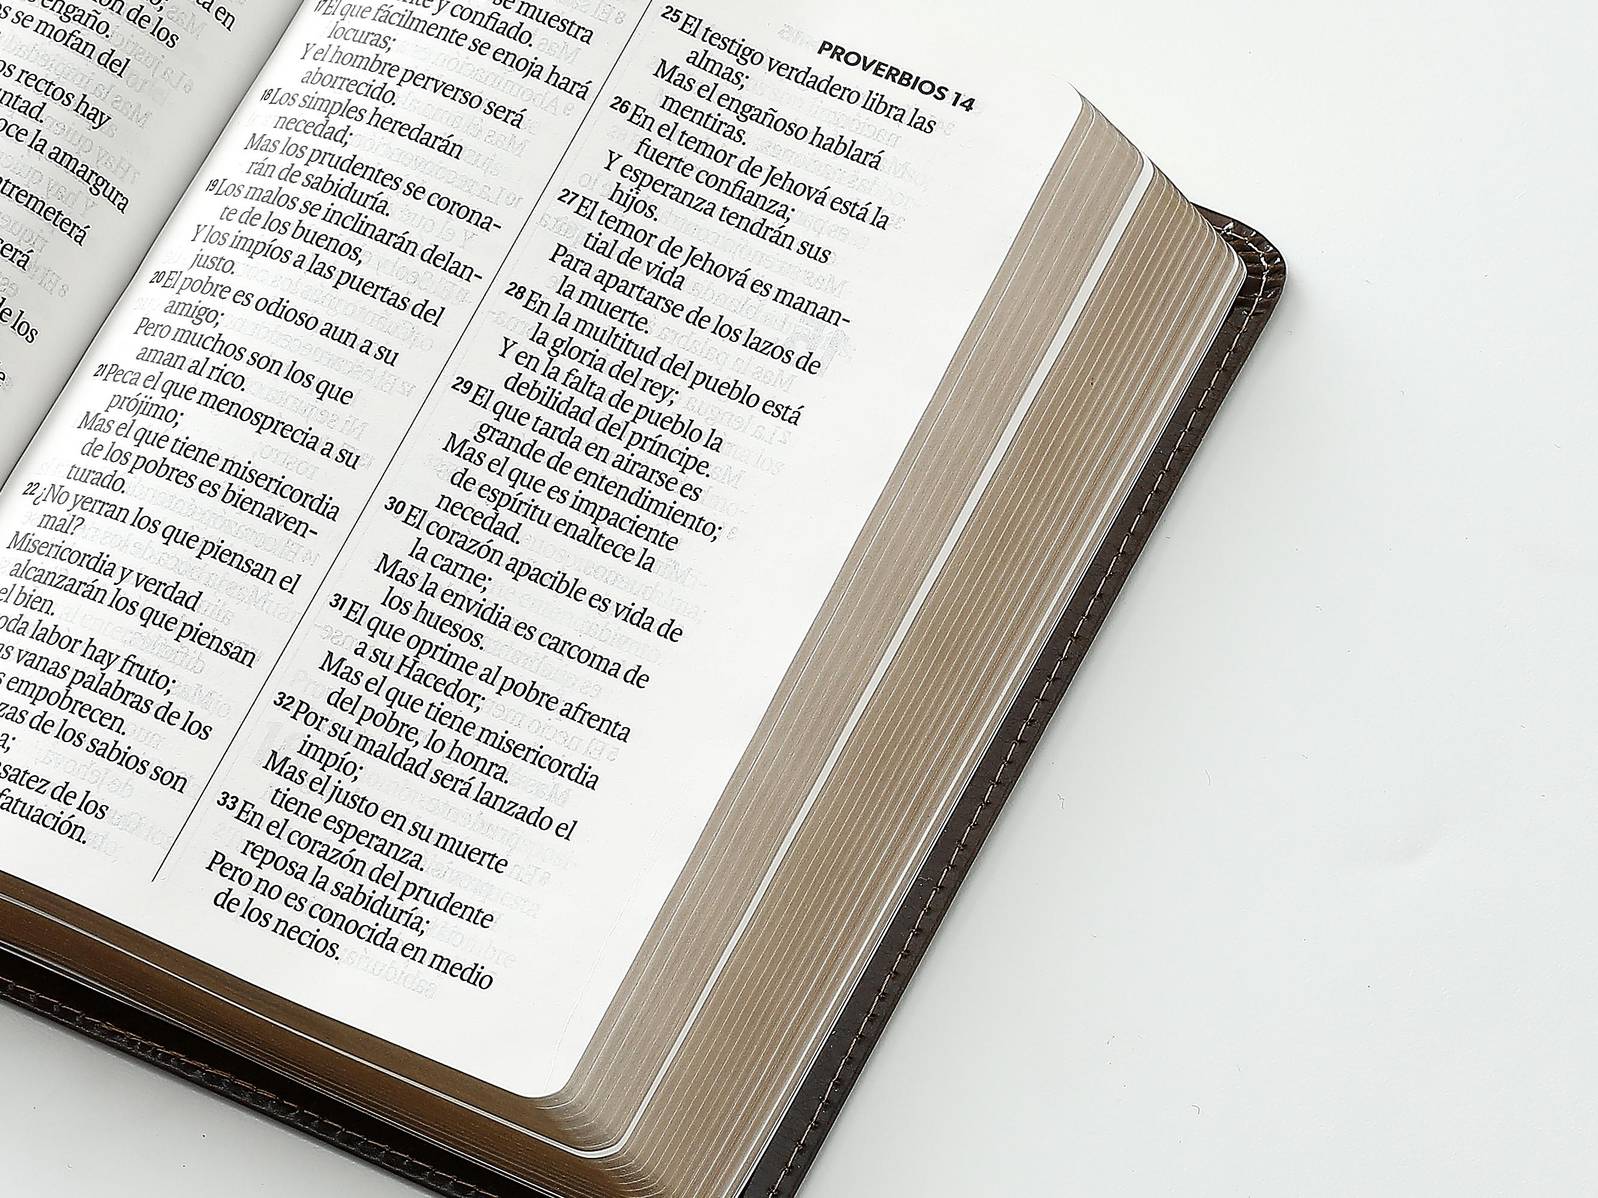 PROVERBIOS 14
engaño.
se mofan del
rectos hay
la amargura
se muestra
y confiado.
17 El que fácilmente se enoja hará
locuras;
Y el hombre perverso será
aborrecido.
18 Los simples heredarán
necedad;
Mas los prudentes se corona-
rán de sabiduría.
19 Los malos se inclinarán delan-
te de los buenos,
Y los impíos a las puertas del
justo.
20 El pobre es odioso aun a su
amigo;
Pero muchos son los que
aman al rico.
21 Peca el que menosprecia a su
prójimo;
Mas el que tiene misericordia
de los pobres es bienaven-
turado.
22 ¿No yerran los que piensan el
mal?
Misericordia y verdad
alcanzarán los que piensan
el bien.
labor hay fruto;
vanas palabras de los
empobrecen.
de los sabios son
de los
fatuación.
25 El testigo verdadero libra las
almas;
Mas el engañoso hablará
mentiras.
26 En el temor de Jehová está la
fuerte confianza;
Y esperanza tendrán sus
hijos.
27 El temor de Jehová es manan-
tial de vida
Para apartarse de los lazos de
la muerte.
28 En la multitud del pueblo está
la gloria del rey;
Y en la falta de pueblo la
debilidad del príncipe.
29 El que tarda en airarse es
grande de entendimiento;
Mas el que es impaciente
de espíritu enaltece la
necedad.
30 El corazón apacible es vida de
la carne;
Mas la envidia es carcoma de
los huesos.
31 El que oprime al pobre afrenta
a su Hacedor;
Mas el que tiene misericordia
del pobre, lo honra.
32 Por su maldad será lanzado el
impío;
Mas el justo en su muerte
tiene esperanza.
33 En el corazón del prudente
reposa la sabiduría;
Pero no es conocida en medio
de los necios.